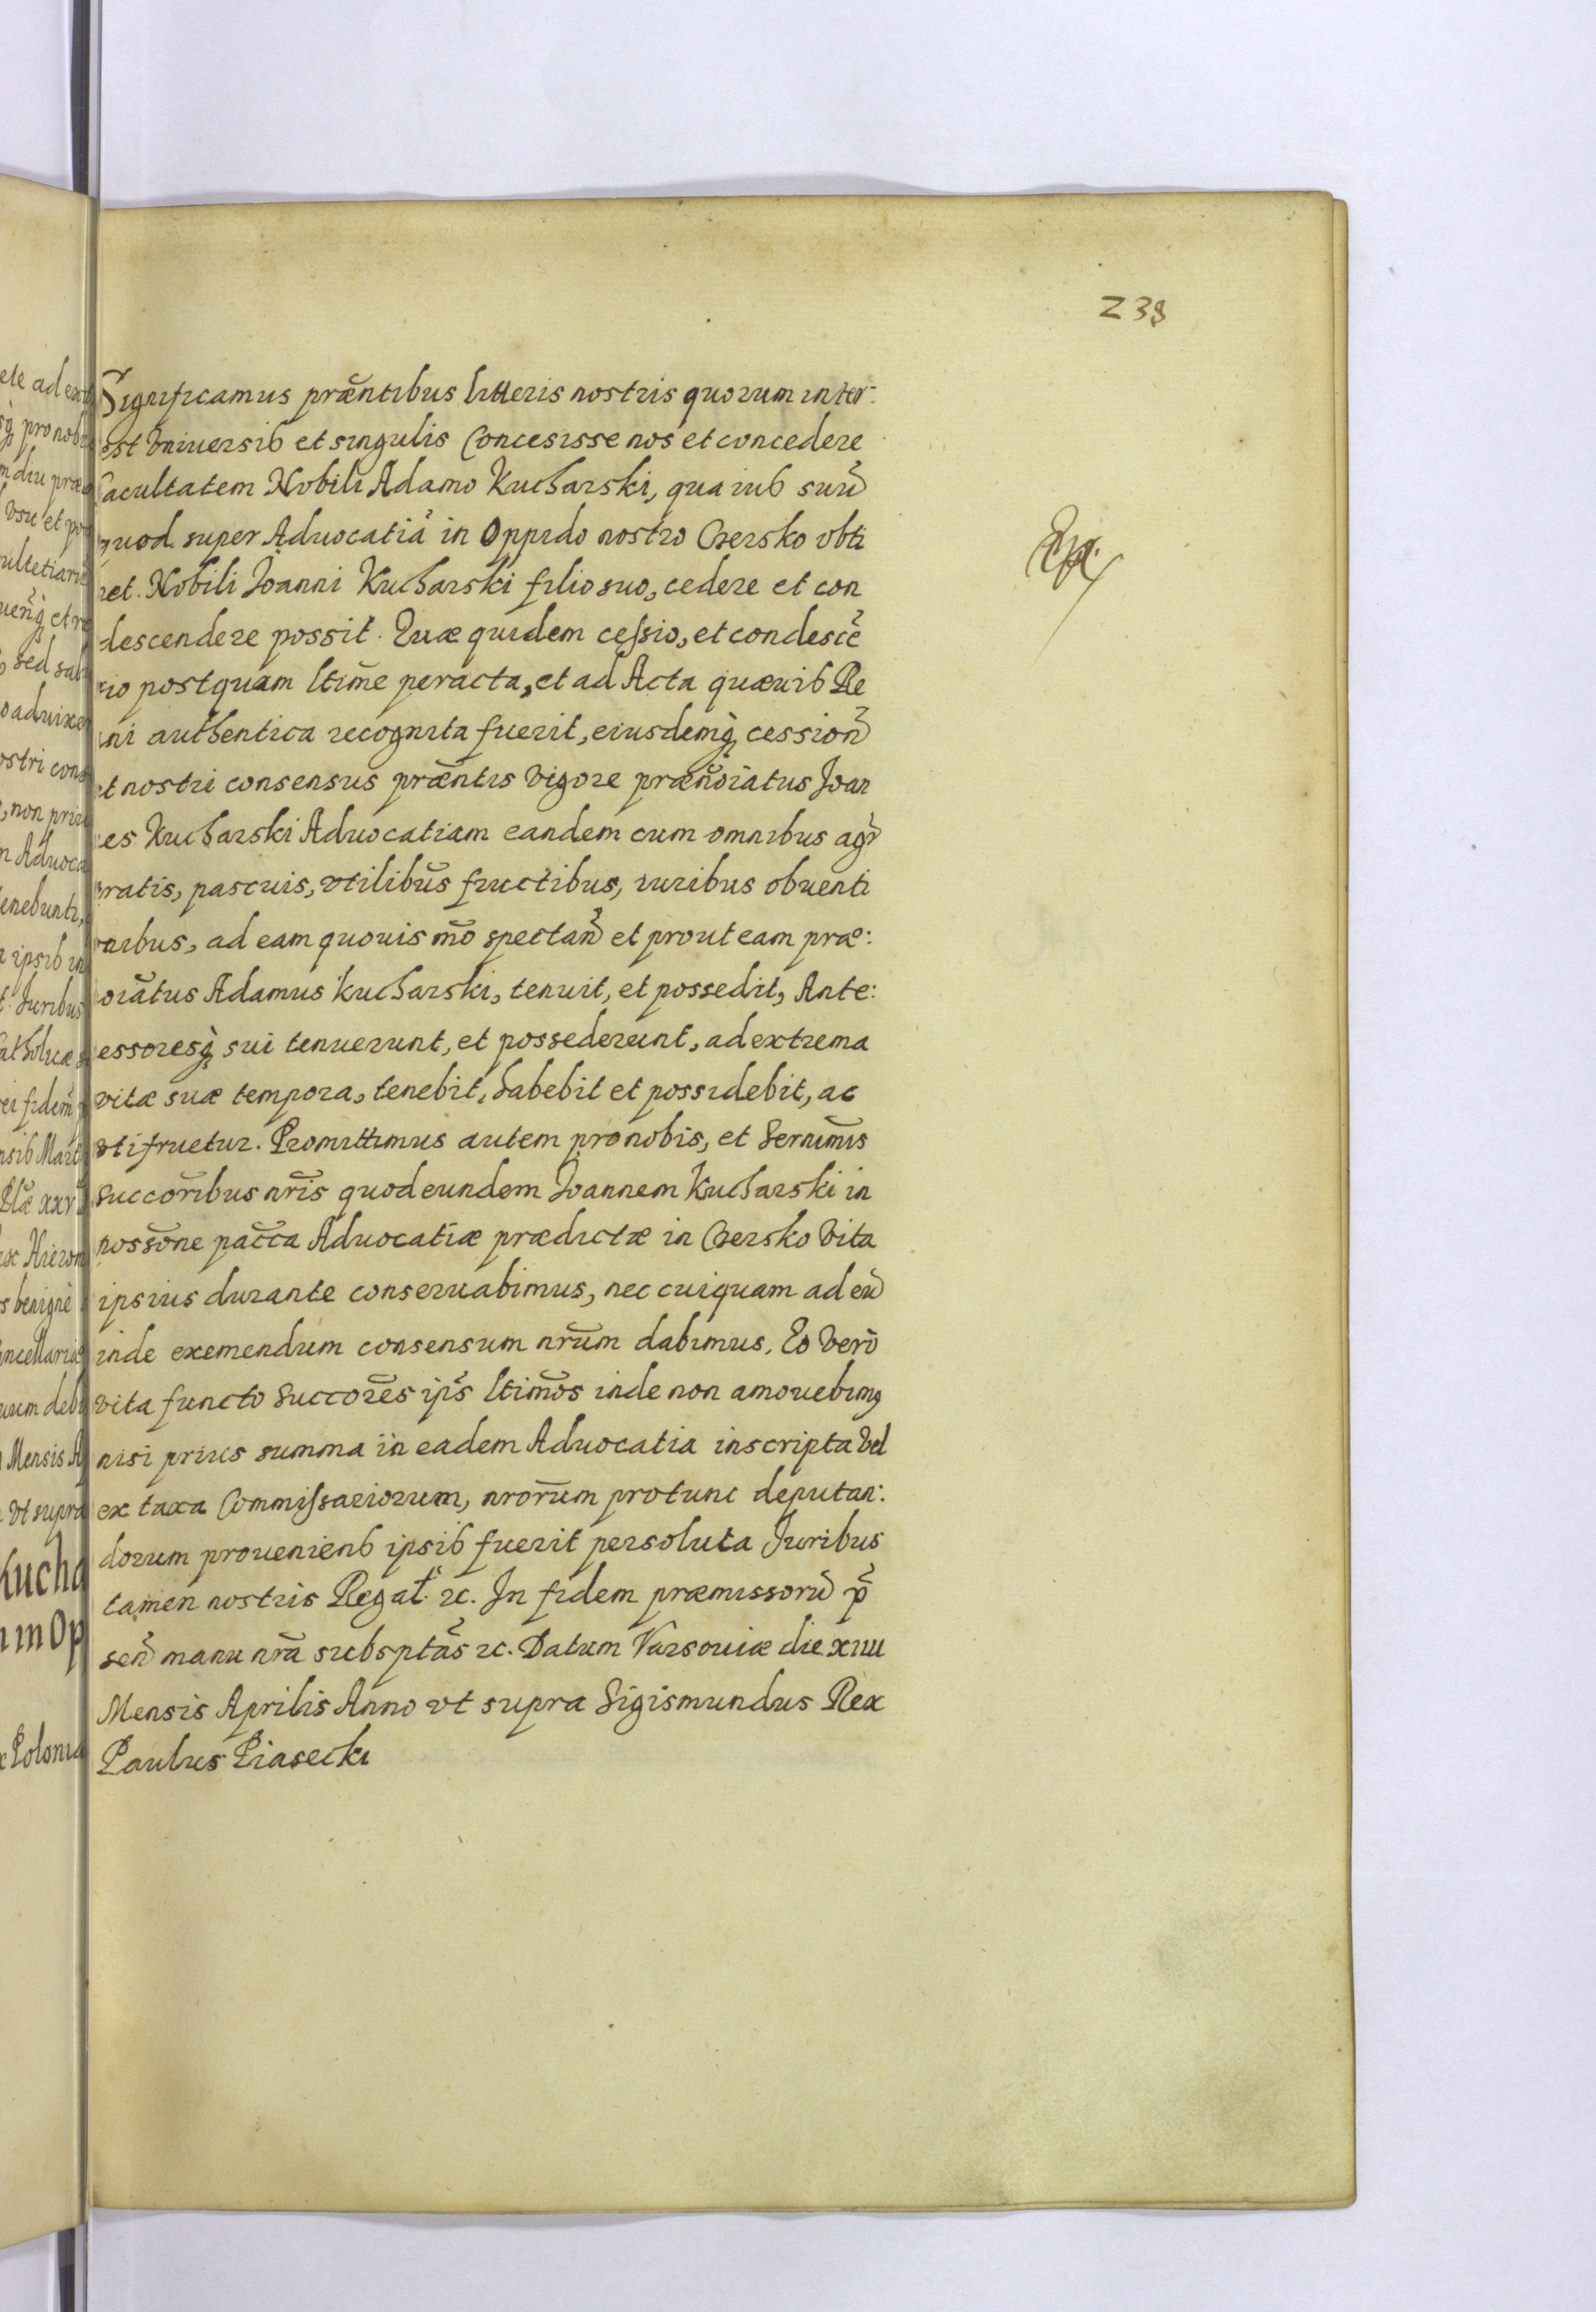 239
Significamus præntibus litteris nostris quorum inter:
est Vniuersis et singulis Concesisse nos et concedere
facultatem Nobili Adamo Kucharski, qua ius suũ
quod super Aduocatiã in Oppido nostro Czersko obti
net. Nobili Joanni Kucharski filio suo, cedere et con
descendere possit. Quæ quidem cessio, et condescẽ
sio postquam ltime peracta, et ad Acta quæuis Re
gni authentica recognita fuerit, eiusdemq cessioñ
et nostri consensus præntis vigore præñoiatus Joan
nes Kucharski Aduocatiam eandem cum omnibus agr̃
pratis, pascuis, vtilibus fructibus, iuribus obuenti
onibus, ad eam quouis mõ spectañ et prout eam præ:
oiãtus Adamus Kucharski, tenuit, et possedit, Ante:
cessoresq sui tenuerunt, et possederunt, ad extrema
vitæ suæ tempora, tenebit, habebit et possidebit, ac
vtifruetur. Promittimus autem pro nobis, et Serniṁis
succoribus nr̃is quod eundem Joannem Kucharski in
possone pacca Aduocatiæ prædictæ in Czersko Vita
ipsius durante conseruabimus, nec cuiquam ad eũ
inde exemendum consensum nrum dabimus. Eo Vero
vita functo succores ips̃ ltimos inde non amouebimq
nisi prius summa in eadem Aduocatia inscripta Vel
ex taxa Commissariorum, nrorum protunc deputan:
dorum prouenienb ipsis fuerit persoluta Juribus
tamen nostris Regal. &c. In fidem præmissorũ p̃
señ manu nrã subsptãs &c. Datum Varsouiæ die xiiii
Mensis Aprilis Anno vt supra Sigismundus Rex
Paulus Piasecki